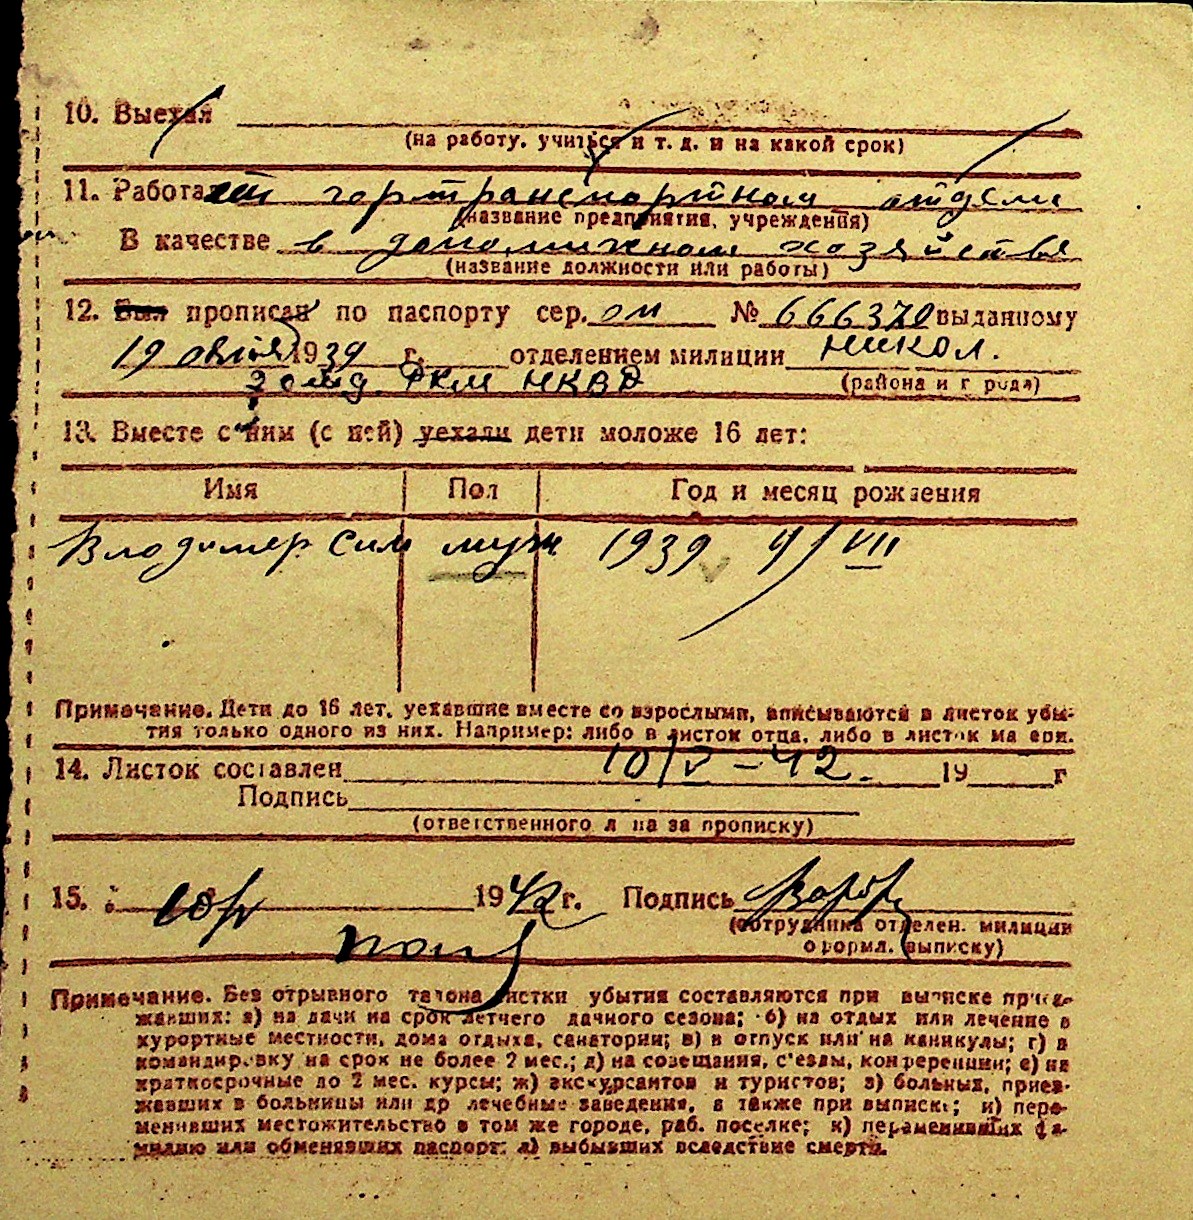 10. Выехал
(на работу, учиться и т. д. и на какой срок)
11. Работает гортранспортном отделе
(название предприятия, учреждения)
В качестве в домашнем хозяйстве
(название должности или работы)
12. Был прописан по паспорту сер. ОМ № 666370 выданному
19 1939 г. отделением милиции Никол.
2 отд. РКМ НКВД (района и города)
13. Вместе с ним (с ней) уехали дети моложе 16 лет:
Имя Пол Год и месяц рождения
Владимер Сим муж 1939 VII
Примечание. Дети до 16 лет, уехавшие вместе со взрослыми, вписываются в листок убы-
тия только одного из них. Например: либо в листок отца, либо в листок матери.
14. Листок составлен 10/V-42. 19 г
Подпись
(ответственного лица за прописку)
15. 1942 г. Подпись
(сотрудника отделен. милиции
оформл. выписку)
Примечание. Без отрывного талона листки убытия составляются при выписке приез-
жавших: а) на дачи на срок летнего дачного сезона; б) на отдых или лечение в
курортные местности, дома отдыха, санатории; в) в отпуск или на каникулы; г) в
командировку на срок не более 2 мес.; д) на совещания, с'езды, конференции; е) на
краткосрочные до 2 мес. курсы; ж) экскурсантов и туристов; з) больных, приез-
жавших в больницы или др лечебные заведения, а также при выписке; и) пере-
менивших местожительство в том же городе, раб. поселке; к) переменивших фа-
милию или обменявших паспорт; л) выбывших вследствие смерти.